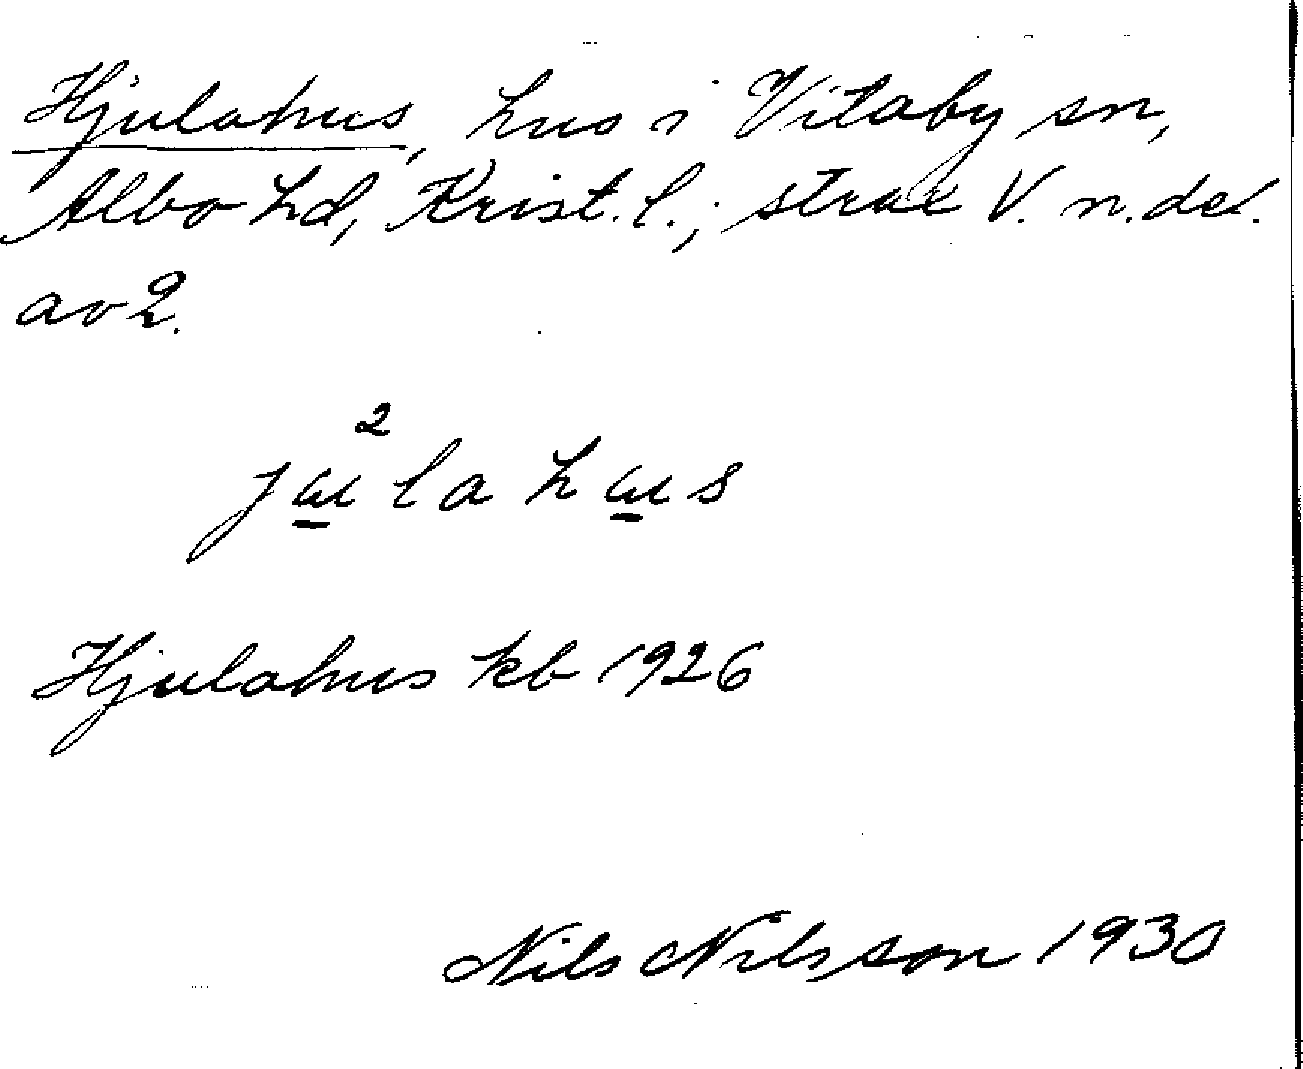 Hjulahus, hus i Vitaby sn,
Albo hd, Krist. l.; strax V. n. del.
av 2.
2
jɯlahɯs
Hjulahus kb 1926
Nils Nilsson 1930